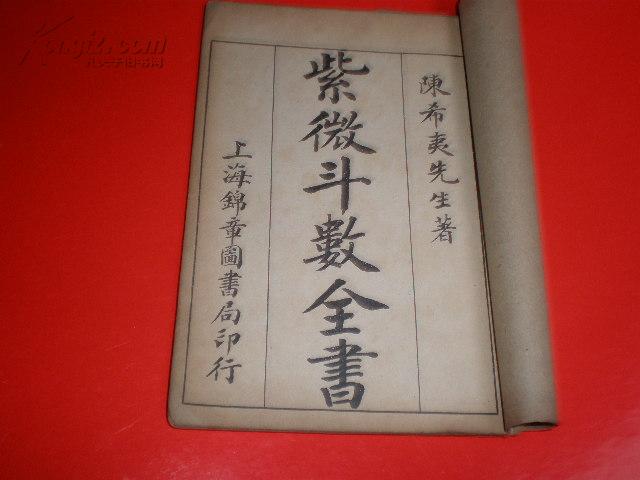 陳希夷先生著
紫微斗數全書
上海錦章圖書局印行
Kongfz.com
孔夫子旧书网